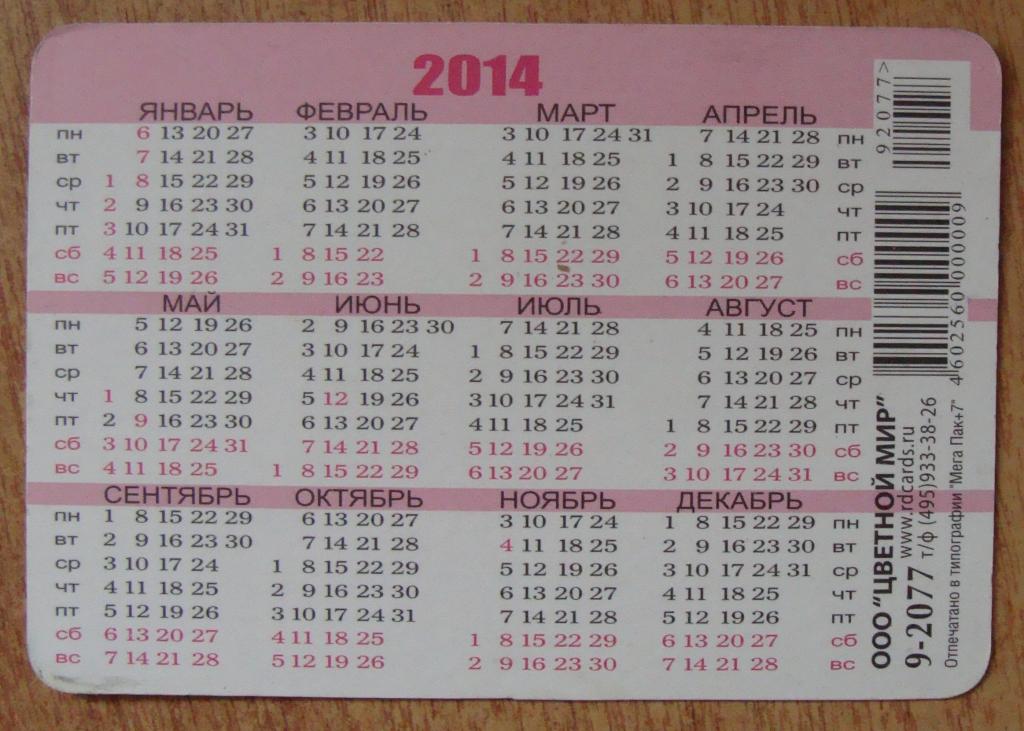 2014
ЯНВАРЬ ФЕВРАЛЬ МАРТ АПРЕЛЬ
пн 6 13 20 27 3 10 17 24 3 10 17 24 31 7 14 21 28 пн
вт 7 14 21 28 4 11 18 25 4 11 18 25 1 8 15 22 29 вт
ср 1 8 15 22 29 5 12 19 26 5 12 19 26 2 9 16 23 30 ср
чт 2 9 16 23 30 6 13 20 27 6 13 20 27 3 10 17 24 чт
пт 3 10 17 24 31 7 14 21 28 7 14 21 28 4 11 18 25 пт
сб 4 11 18 25 1 8 15 22 1 8 15 22 29 5 12 19 26 сб
вс 5 12 19 26 2 9 16 23 2 9 16 23 30 6 13 20 27 вс
МАЙ ИЮНЬ ИЮЛЬ АВГУСТ
пн 5 12 19 26 2 9 16 23 30 7 14 21 28 4 11 18 25 пн
вт 6 13 20 27 3 10 17 24 1 8 15 22 29 5 12 19 26 вт
ср 7 14 21 28 4 11 18 25 2 9 16 23 30 6 13 20 27 ср
чт 1 8 15 22 29 5 12 19 26 3 10 17 24 31 7 14 21 28 чт
пт 2 9 16 23 30 6 13 20 27 4 11 18 25 1 8 15 22 29 пт
сб 3 10 17 24 31 7 14 21 28 5 12 19 26 2 9 16 23 30 сб
вс 4 11 18 25 1 8 15 22 29 6 13 20 27 3 10 17 24 31 вс
СЕНТЯБРЬ ОКТЯБРЬ НОЯБРЬ ДЕКАБРЬ
пн 1 8 15 22 29 6 13 20 27 3 10 17 24 1 8 15 22 29 пн
вт 2 9 16 23 30 7 14 21 28 4 11 18 25 2 9 16 23 30 вт
ср 3 10 17 24 1 8 15 22 29 5 12 19 26 3 10 17 24 31 ср
чт 4 11 18 25 2 9 16 23 30 6 13 20 27 4 11 18 25 чт
пт 5 12 19 26 3 10 17 24 31 7 14 21 28 5 12 19 26 пт
сб 6 13 20 27 4 11 18 25 1 8 15 22 29 6 13 20 27 сб
вс 7 14 21 28 5 12 19 26 2 9 16 23 30 7 14 21 28 вс
92077>
4602560000009
ООО "ЦВЕТНОЙ МИР"
www.rdcards.ru
9-2077 т/ф (495)933-38-26
Отпечатано в типографии "Мега Пак+7"